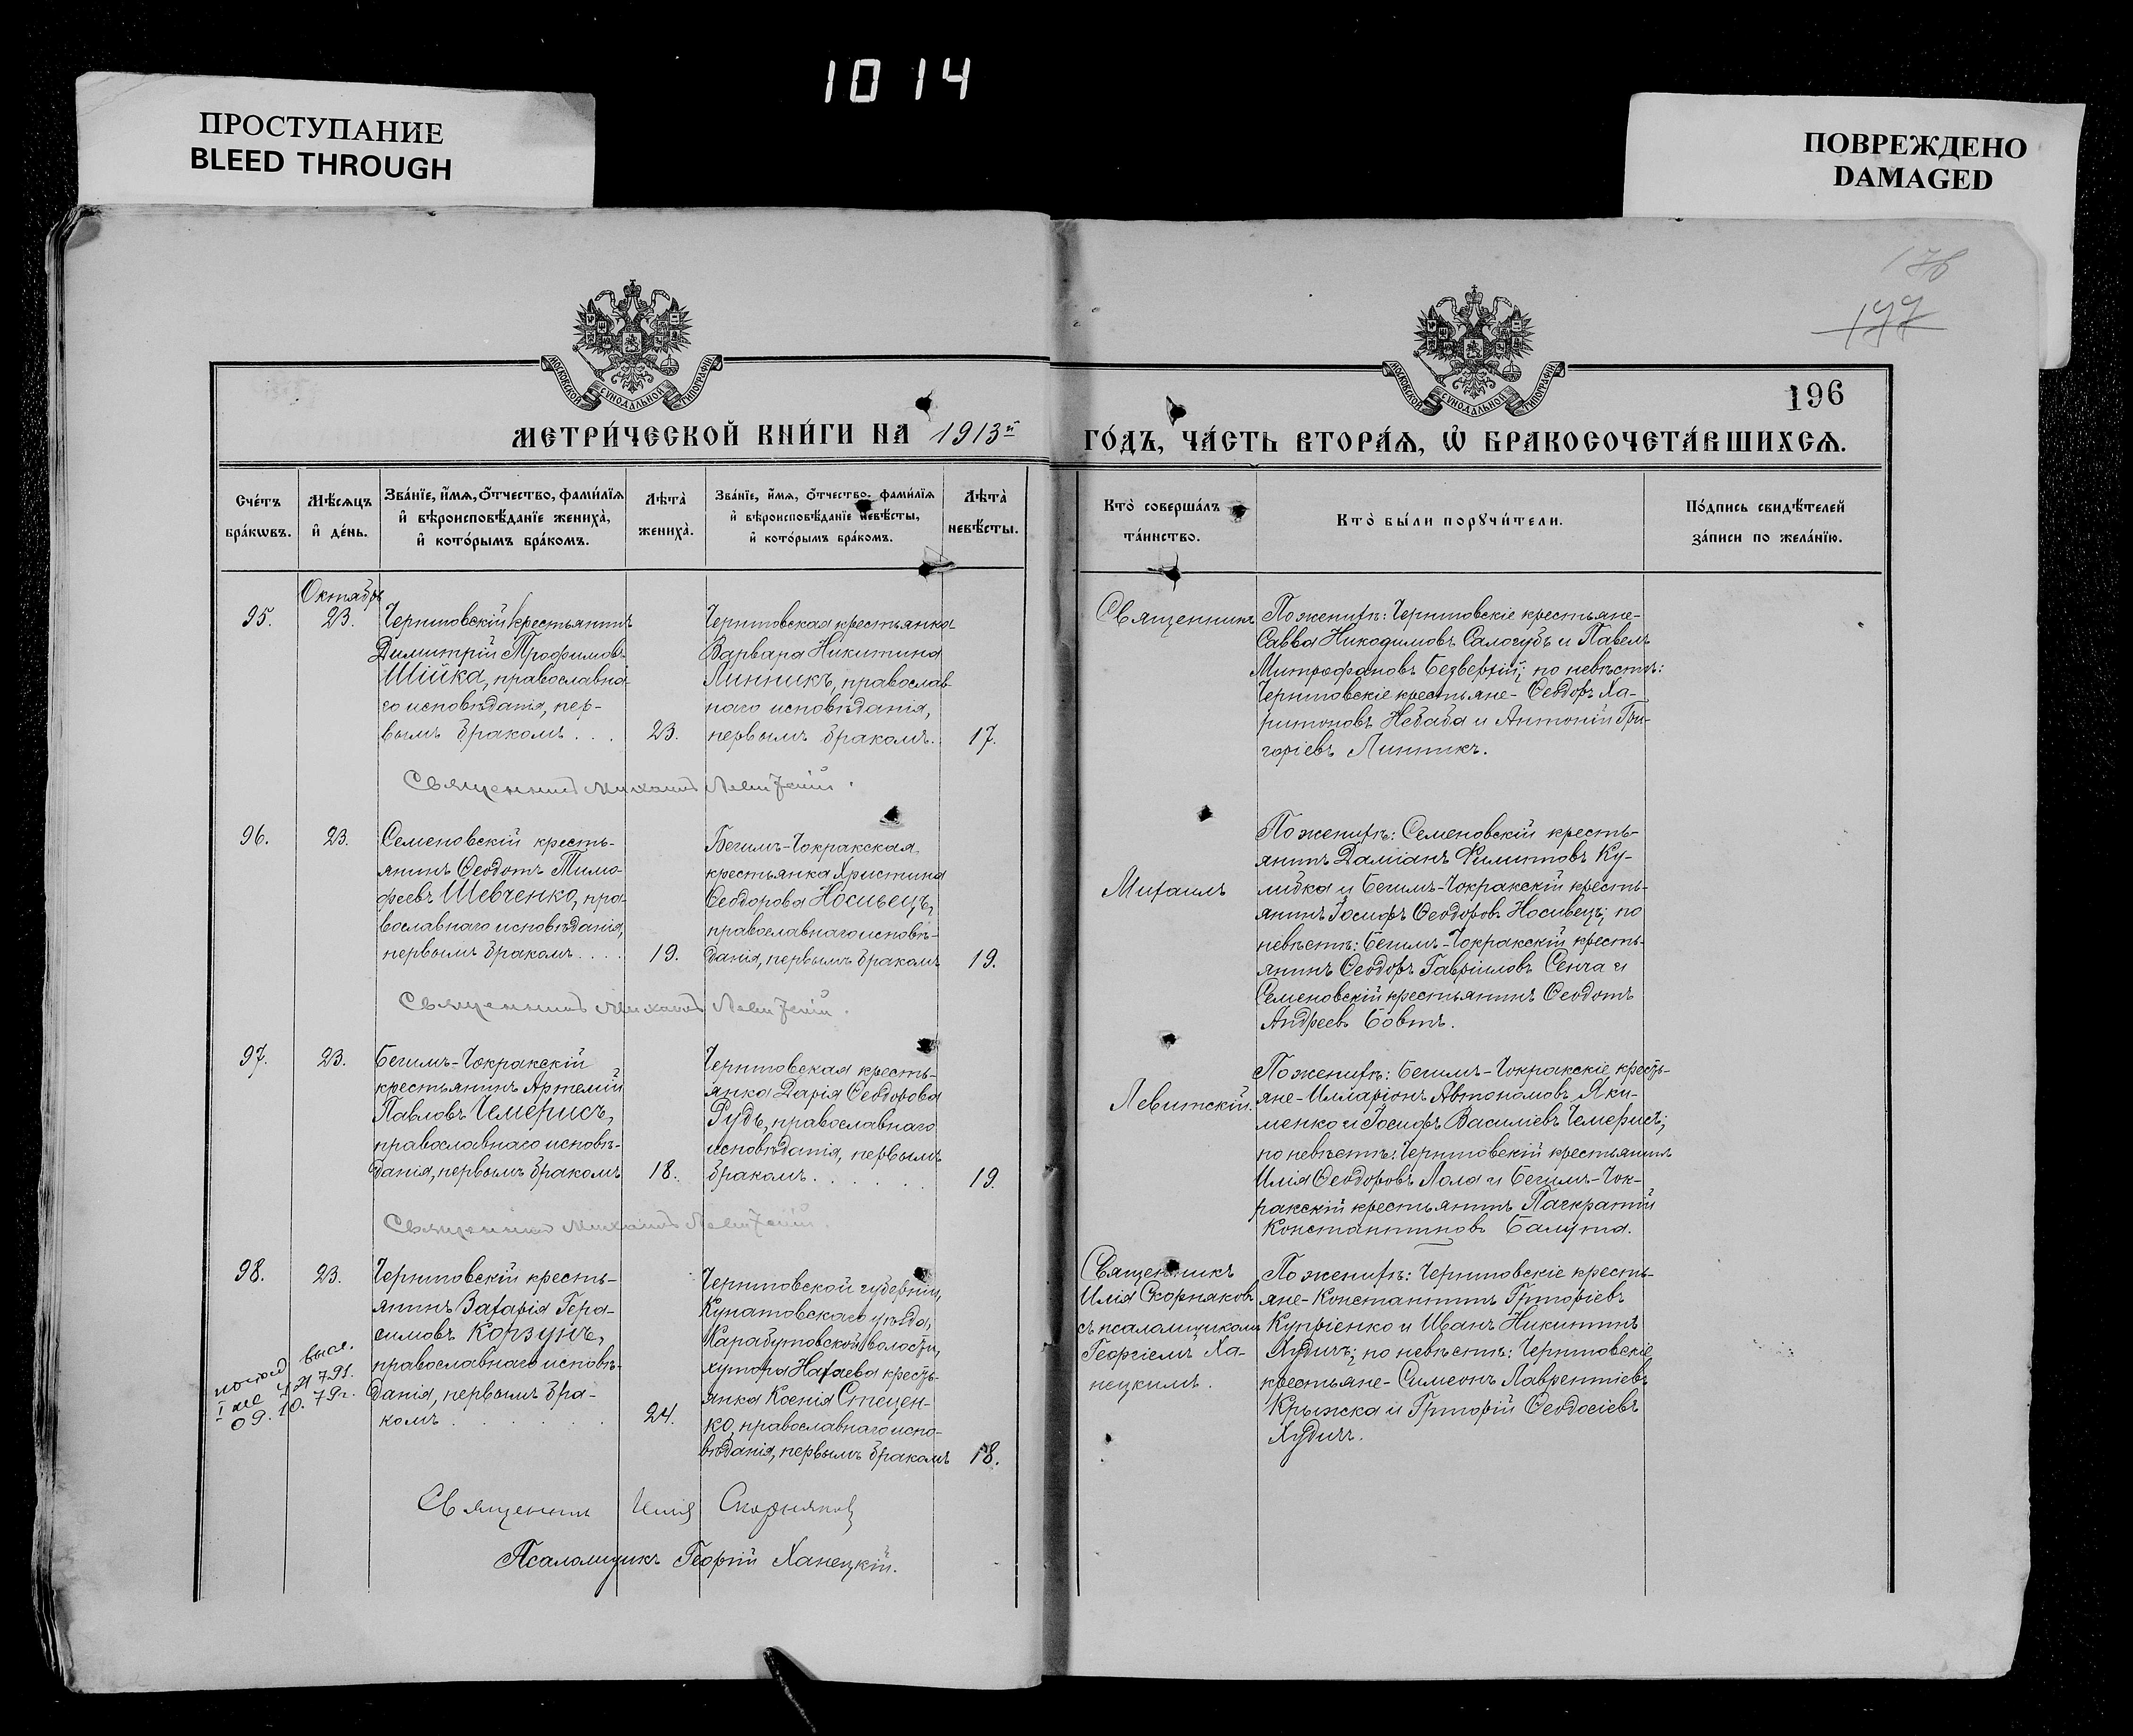 1014
ПРОСТУПАНИЕ
BLEED THROUGH
ПОВРЕЖДЕНО
DAMAGED
176
177
196
МОСКОВСКОЙ СѴНОДАЛЬНОЙ ТИПОГРАФІИ
МОСКОВСКОЙ СѴНОДАЛЬНОЙ ТИПОГРАФІИ
МЕТРИ́ЧЕСКОЙ КНИ́ГИ НА 1913й
ГО́ДЪ, ЧА́СТЬ ВТОРА́Ѧ, Ѡ҆ БРАКОСОЧЕТА́ВШИХСѦ.
Сче́тъ
бра́кѡвъ.
Мѣ́сѧцъ
и҆ де́нь.
Зва́нїе, и҆́мѧ, ѻ҆́тчество, фами́лїѧ
и҆ вѣроисповѣ́данїе жениха̀,
и҆ кото́рымъ бра́комъ.
Лѣ́та̀
жениха̀.
Зва́нїе, и҆́мѧ, ѻ҆́тчество, фами́лїѧ
и҆ вѣроисповѣ́данїе невѣ́сты,
и҆ кото́рымъ бра́комъ.
Лѣ́та̀
невѣ́сты.
Кто̀ соверша́лъ
та́инство.
Кто̀ бы́ли порꙋчи́тели.
По́дпись свидѣ́телей
за́писи по жела́нїю.
Октябрь
95.
23.
Черниговскій крестьянинъ
Димитрій Трофимовъ
Шійка, православна-
го исповѣданія, пер-
вымъ бракомъ . . .
23.
Черниговская крестьянка
Варвара Никитина
Линникъ, православ-
наго исповѣданія,
первымъ бракомъ.
17.
Священникъ
По женихѣ: Черниговскіе крестьяне-
Савва Никодимовъ Салогубъ и Павелъ
Митрофановъ Безверхій; по невѣстѣ:
Черниговскіе крестьяне- Ѳеодоръ Ха-
ритоновъ Небаба и Антоній Гри-
горіевъ Линникъ.
Священникъ Михаилъ Левитскій.
96.
23.
Семеновскій кресть-
янинъ Ѳеодотъ Тимо-
феевъ Шевченко, пра-
вославнаго исповѣданія,
первымъ бракомъ . . . .
19.
Бегимъ-Чокракская
крестьянка Христина
Ѳеодорова Носивецъ,
православнаго исповѣ-
данія, первымъ бракомъ
19.
Михаилъ
По женихѣ: Семеновскій кресть-
янинъ Даміанъ Филиповъ Ку-
либка и Бегимъ-Чокракскій кресть-
янинъ Іосифъ Ѳеодоровъ Носивецъ; по
невѣстѣ: Бегимъ-Чокракскій кресть-
янинъ Ѳеодоръ Гавріиловъ Сенча и
Семеновскій крестьянинъ Ѳеодотъ
Андреевъ Бовтъ.
Священникъ Михаилъ Левитскій.
97.
23.
Бегимъ-Чокракскій
крестьянинъ Артемій
Павловъ Чемерисъ,
православнаго исповѣ-
данія, первымъ бракомъ
18.
Черниговская кресть-
янка Дарія Ѳеодорова
Рудь, православнаго
исповѣданія, первымъ
бракомъ . . . . . .
19.
Левитскій.
По женихѣ: Бегимъ-Чокракскіе кресть-
яне- Илларіонъ Автономовъ Яки-
менко и Іосифъ Василіевъ Чемерисъ;
по невѣстѣ: Черниговскій крестьянинъ
Илія Ѳеодоровъ Лола и Бегимъ-Чок-
ракскій крестьянинъ Панкратій
Константиновъ Балута.
Священникъ Михаилъ Левитскій.
98.
23.
Черниговскій кресть-
янинъ Захарія Гера-
симовъ Корзунъ,
православнаго исповѣ-
данія, первымъ бра-
комъ . . . . . .
24.
Черниговской губерніи,
уѣзда,
Карабутовской волости,
хутора Нахаева кресть-
янка Ксенія Стецен-
ко, православнаго испо-
вѣданія, первымъ бракомъ
18.
Священникъ
Илія Скорняковъ
съ псаломщикомъ
Георгіемъ Ха-
нецкимъ.
По женихѣ: Черниговскіе кресть-
яне- Константинъ Григоріевъ
Купріенко и Иванъ Никитинъ
Худичъ; по невѣстѣ: Черниговскіе
крестьяне- Симеонъ Лаврентіевъ
Крыжска и Григорій Ѳеодосіевъ
Худичъ.
09.10.79г.
Священникъ Илія Скорняковъ
Псаломщикъ Георгій Ханецкій.